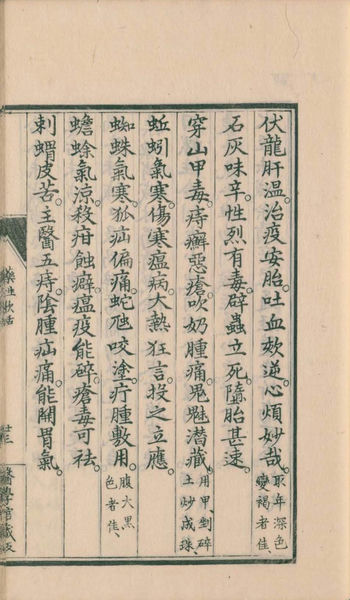 伏龍肝温。治疫安胎。吐血欬逆。心煩妙哉。取年深色變褐者佳、
石灰味辛。性烈有毒。辟蟲立死。墮胎甚速。
穿山甲毒。痔癬惡瘡。吹奶腫痛。鬼魅潜藏。用甲剉碎土炒成珠、
蚯蚓氣寒。傷寒瘟病。大熱狂言。投之立應。
蜘蛛氣寒。狐疝偏痛。蛇虺咬塗。疔腫敷用。腹大黒色者佳、
蟾蜍氣涼。殺疳蝕癖。瘟疫能碎。瘡毒可祛。
刺蝟皮苦。主醫五痔。陰腫疝痛。能開胃氣。
藥性歌括
醫學館藏版